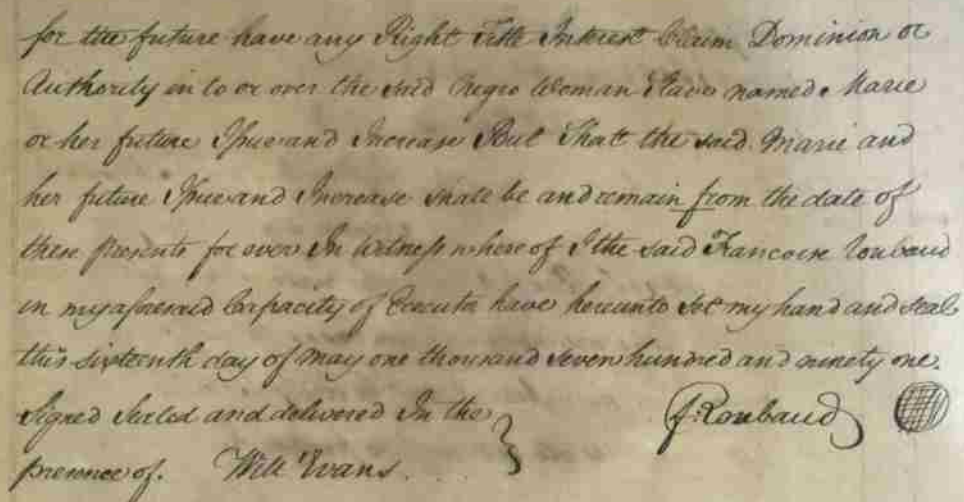 for the future have any Right Title Interest Claim Dominion or
Authority in to or over the said Negro Woman Slave named Marie
or her future Issue and Increase But that the said Marie and
her future Issue and Increase shall be and remain from the date of
these presents for ever In Witness where of I the said Francoise Roubaud
in my aforesaid Capacity of Executor have hereunto set my hand and seal
this sixteenth day of May one thousand seven hundred and ninety one.
Signed Sealed and delivered In the
presence of. Will Evans.
f: Roubaud